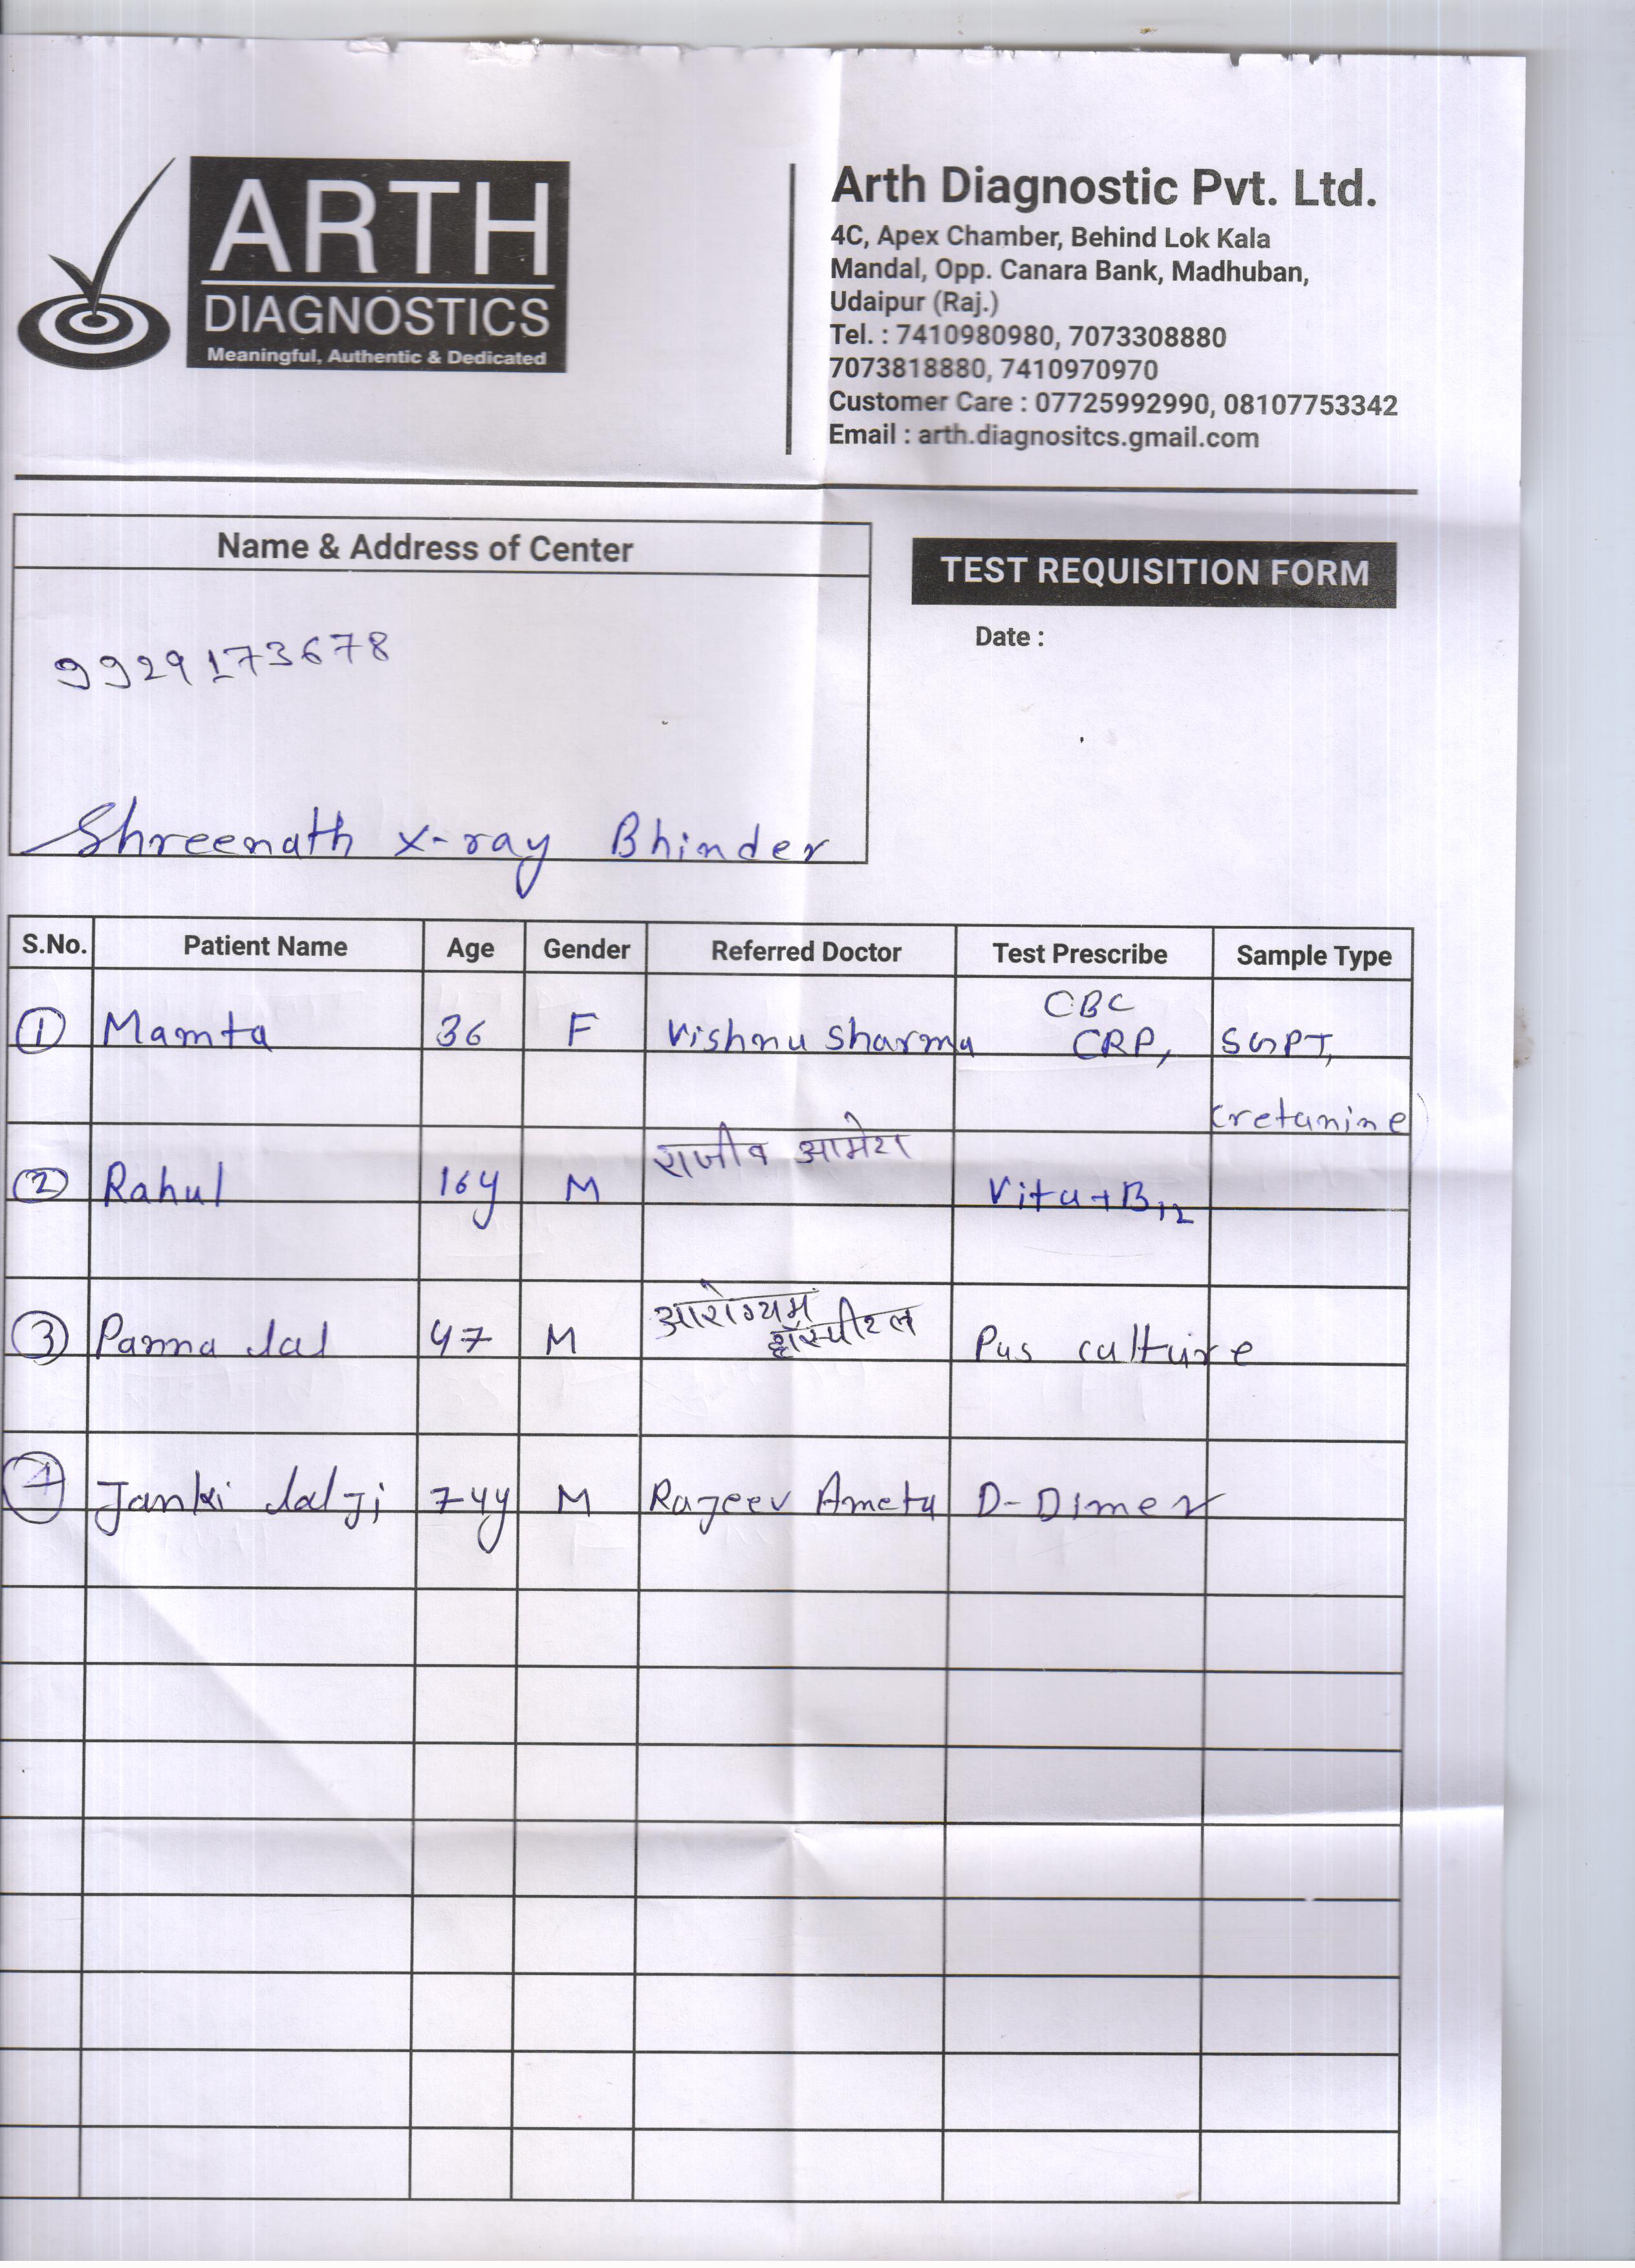 ARTH
DIAGNOSTICS
Meaningful, Authentic & Dedicated
Arth Diagnostic Pvt. Ltd.
4C, Apex Chamber, Behind Lok Kala
Mandal, Opp. Canara Bank, Madhuban,
Udaipur (Raj.)
Tel. : 7410980980, 7073308880
7073818880, 7410970970
Customer Care : 07725992990, 08107753342
Email : arth.diagnositcs.gmail.com
Name & Address of Center
9929173678
Shreenath x-ray Bhinder
TEST REQUISITION FORM
Date :
S.No. Patient Name Age Gender Referred Doctor Test Prescribe Sample Type
CBC
1 Mamta 36 F Vishnu Sharma CRP, SGPT,
Cretanine
राजीव आमेटा
2 Rahul 16y M Vita+B12
आरोग्यम
हॉस्पीटल
3 Panna Lal 47 M Pus culture
4 Janki Lal Ji 74y M Rajeev Ameta D-Dimer